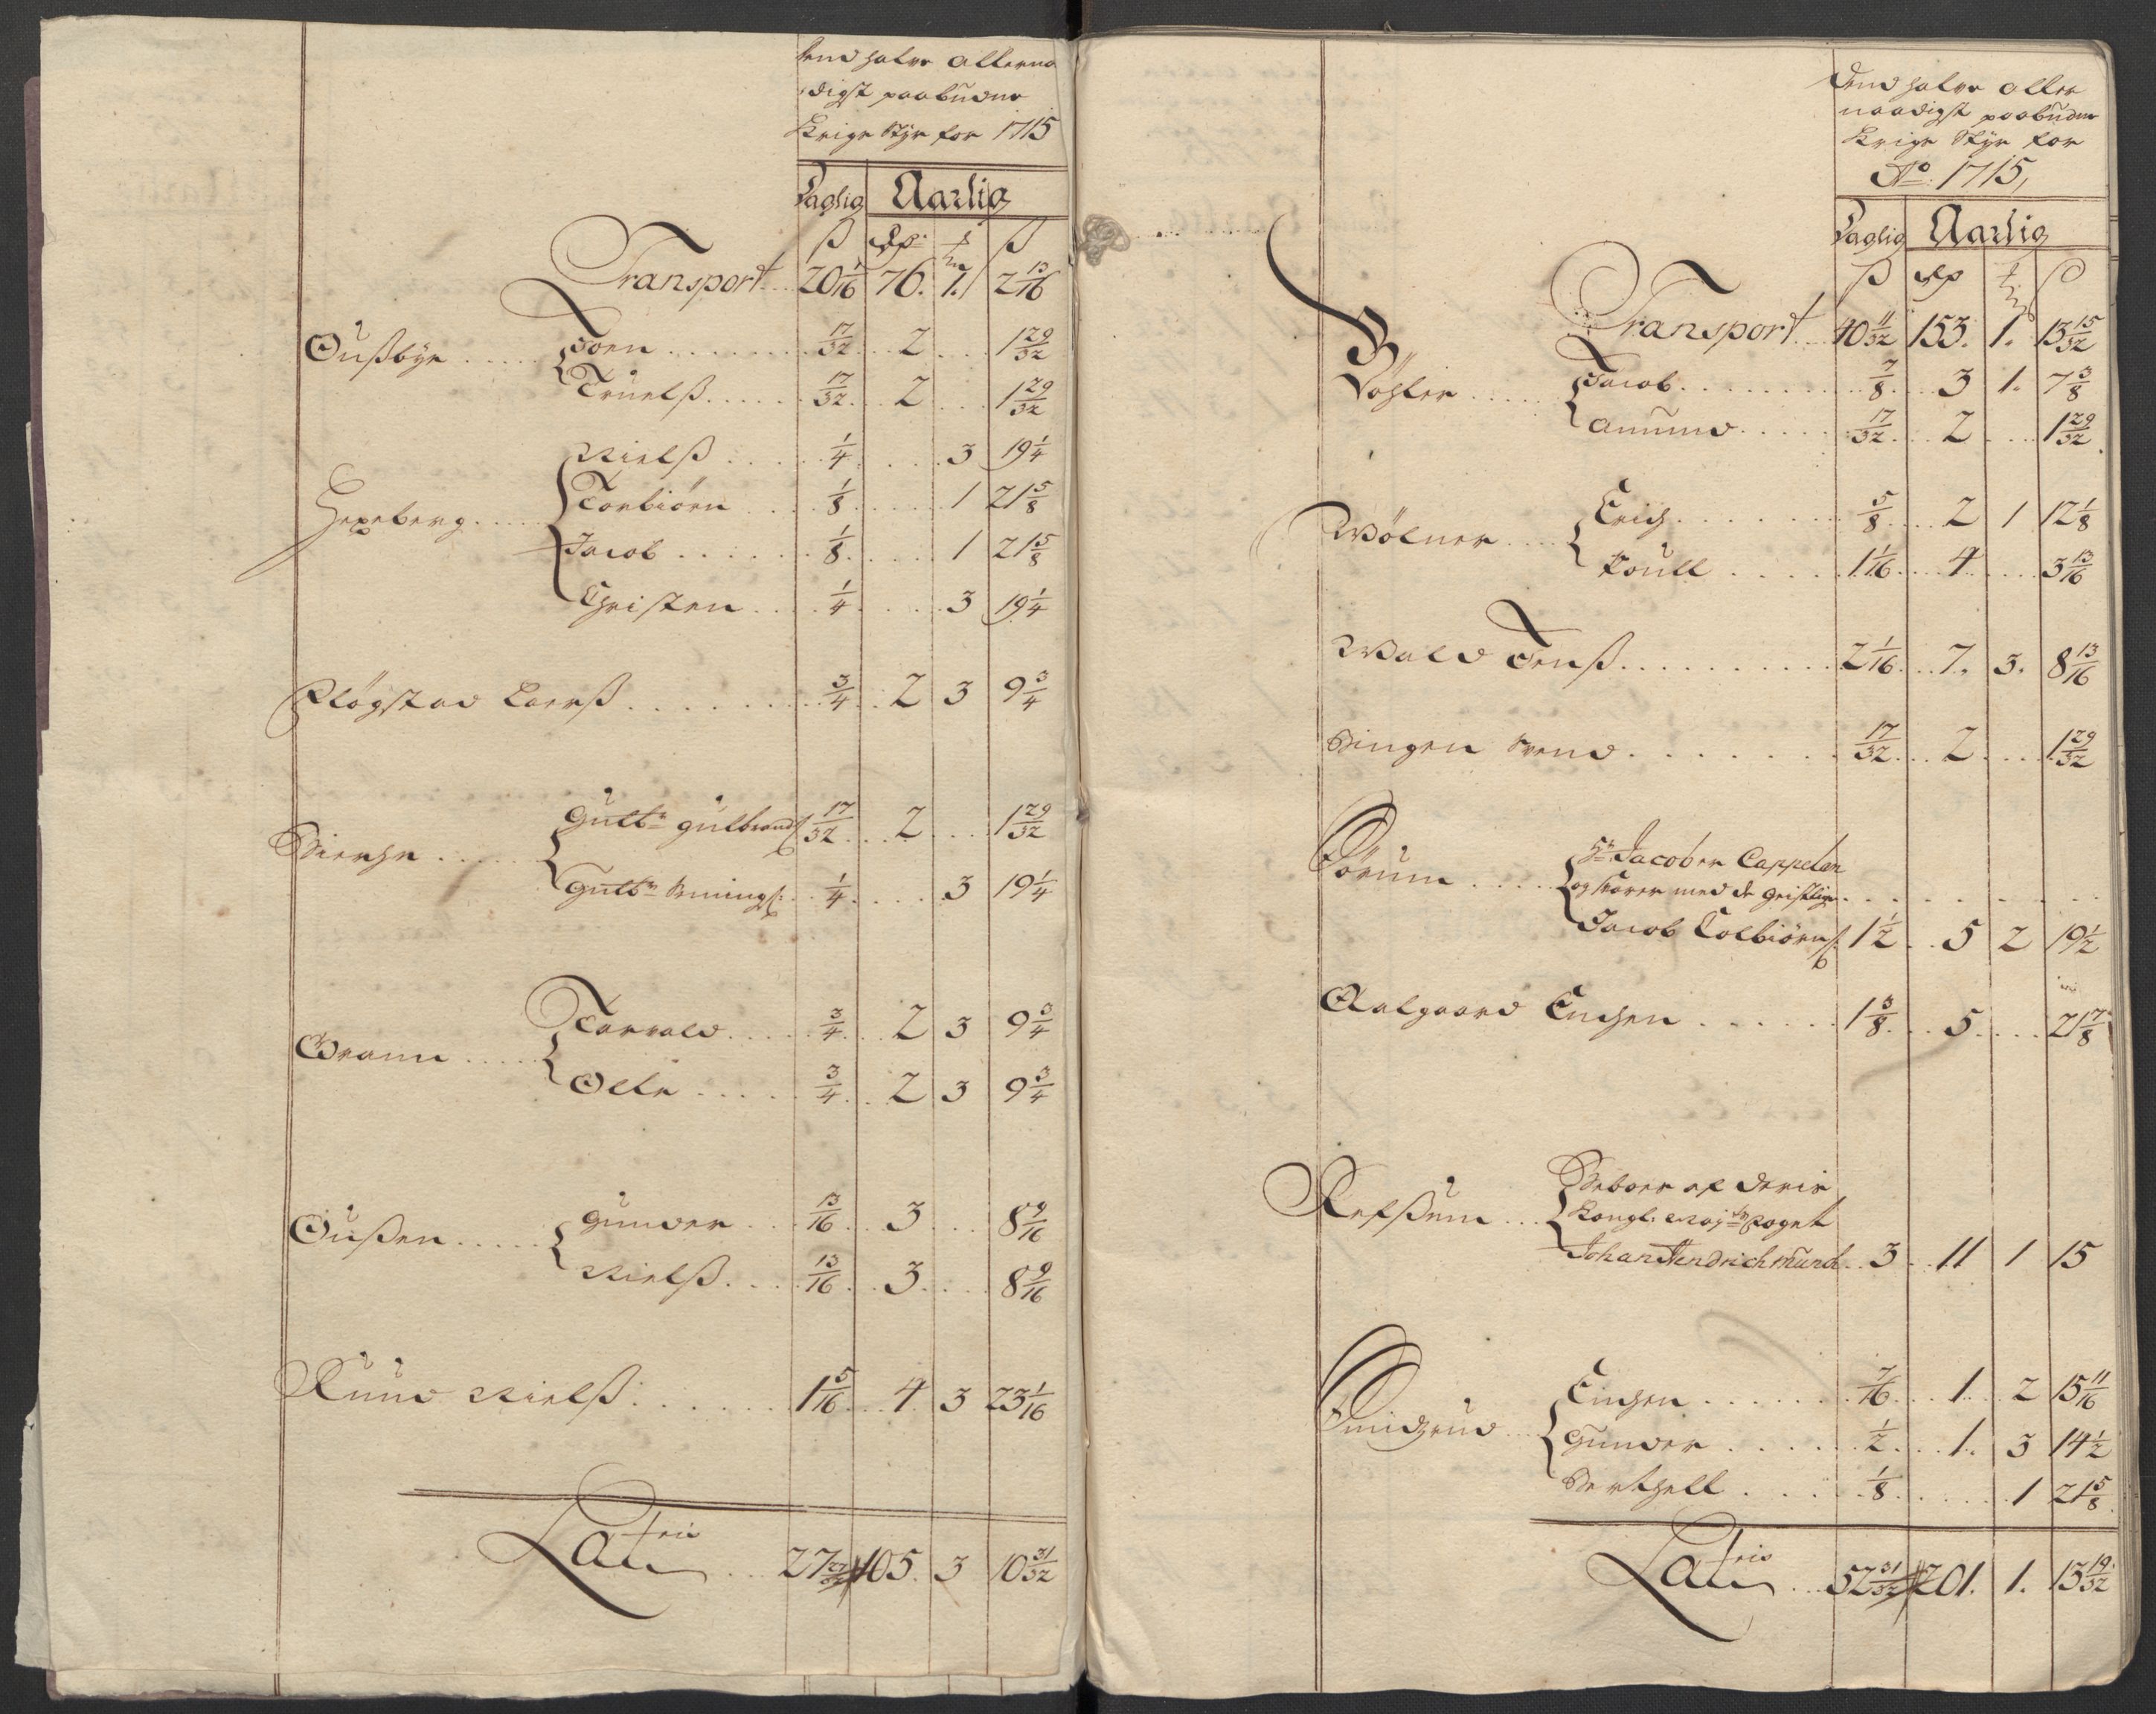 dend halve allerna
digst paabudne
Krige Styr for 1715
Daglig Aarlig
ß Rdr. ß
Transport 20 1/16 76. 1. 2 13/16
Oußbÿe Joen 17/32 2 1 29/32
Truelß 17/32 2 1 29/32
Nielß 1/4 3 19 1/4
Hexeberg Torbiørn 1/8 1 21 5/8
Jacob 1/8 1 21 5/8
Christen 1/4 3 19 1/4
Pløgstad Larß 3/4 2 3 9 3/4
Bierche Gulbr Gulbrands: 17/32 2 1 29/32
Gulbr 1/4 3 19 1/4
Gram Torvald 3/4 2 3 9 3/4
Olle 3/4 2 3 9 3/4
Oußen Gunder 13/16 3 8 9/16
Nielß 13/16 3 8 9/16
Ruud Nielß 1 5/16 4 3 23 1/16
Lateris 27 105. 3 10 31/32
Dend halve aller
naadigst paabudne
Krige Styr for
Ao: 1715,
Daglig Aarlig
ß Rdr ß
Transport 40 11/32 153. 1. 13 15/32
Jacob 7/8 3 1. 7 3/8
Amund 17/32 2 1 29/32
Wølner Erich 5/8 2 1 12 1/8
Poull 1 1/16 4 3 13/16
Wald Jenß 2 1/16 7. 3. 8 13/16
Bingen Svend 17/32 2 1 29/32
Sørum Sr Jacob von Cappelen
og svarer med de geistlige
Jacob Tolbiørns: 1 1/2 5 2 19 1/2
Aalgaard Engen 1 3/8 5 21 7/8
Refßum Beboer af deris
Kongl: Mayts foget
Johan Hendrich Munch 3 11 1 15
Smidzrud Engen 7/16 1 2 15 11/16
Gunder 1/2 1. 3 14 1/2
Berthell 1/8 1 21 5/8
Lateris 52 31/32 201. 1. 13 19/32